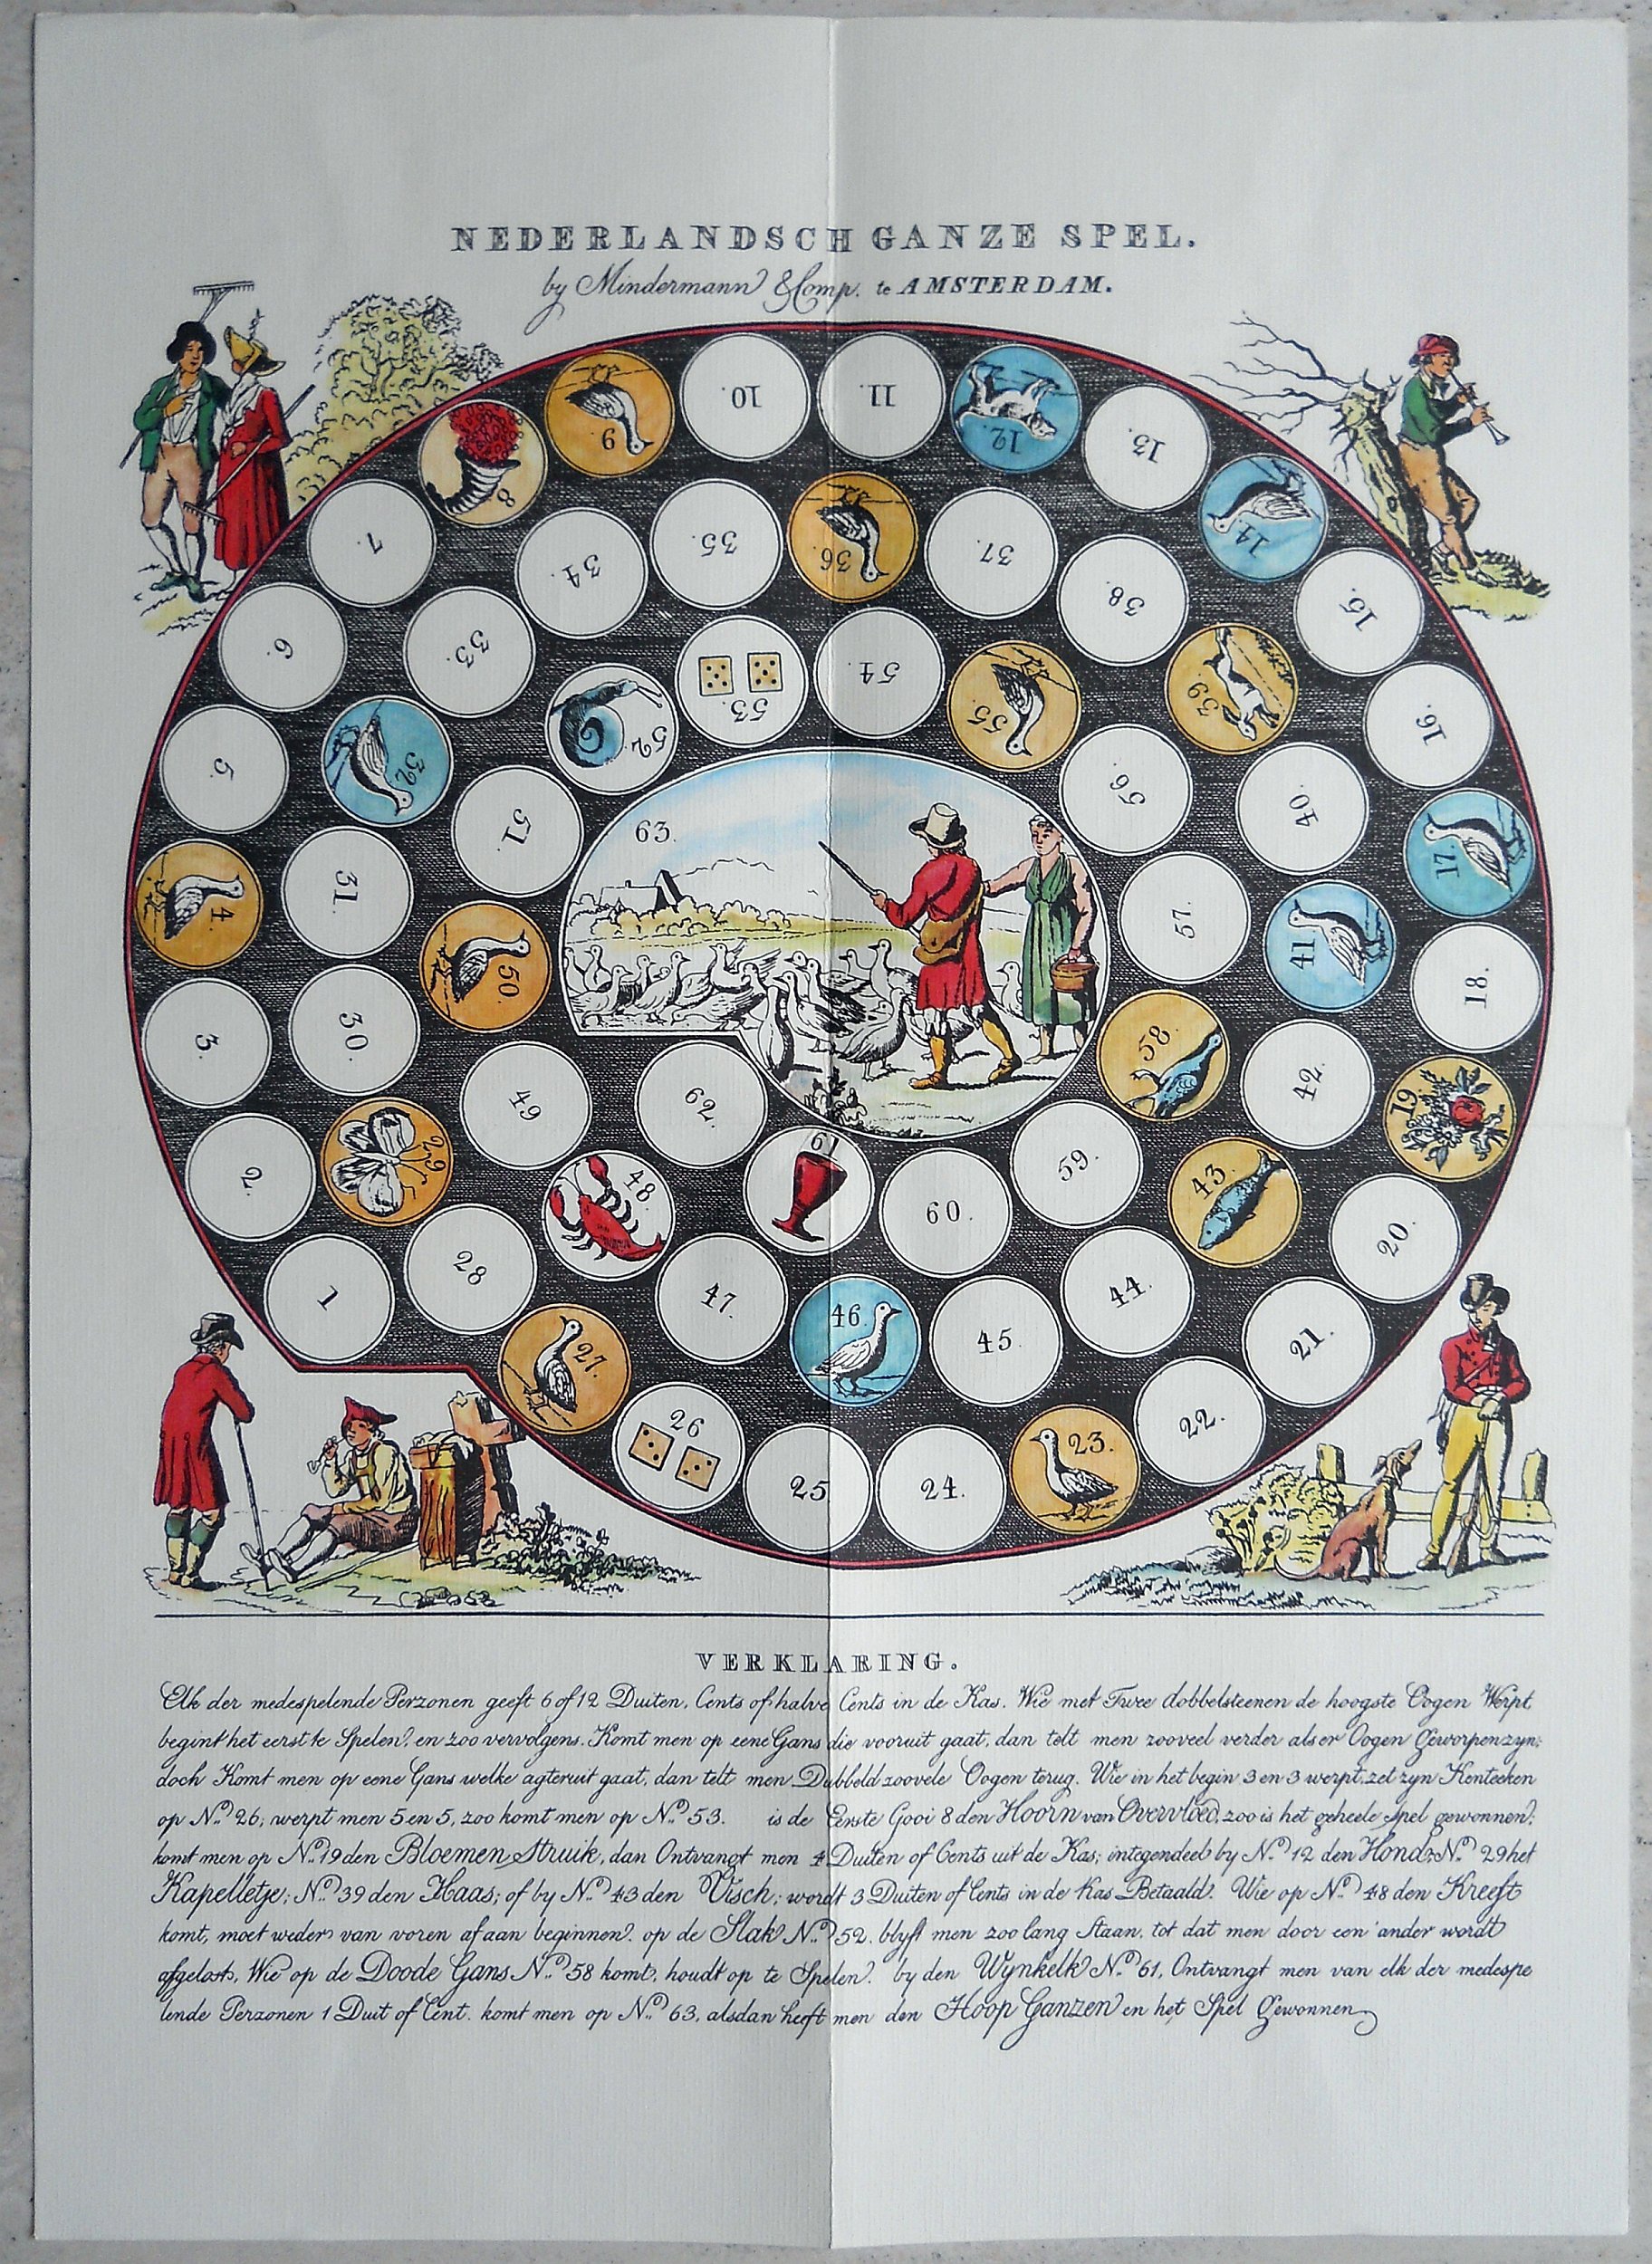 NEDERLANDSCH GANZE SPEL.
by Mindermann & Comp. te AMSTERDAM.
1
2.
3.
4.
5.
6.
7.
8
9
10.
11.
12.
13.
14.
15.
16.
17.
18.
19
20.
21.
22.
23.
24.
25
26
27.
28
29
30.
31.
32
33.
34.
35.
36
37.
38.
39
40.
41
42.
43.
44.
45
46
47.
48
49
50.
51.
52
53
54.
55
56.
57.
58.
59.
60.
61
62.
63.
VERKLARING.
Elk der medespelende Perzonen geeft 6 of 12 Duiten, Cents of halve Cents in de Kas. Wie met Twee dobbelsteenen de hoogste Oogen Werpt
begint het eerst te Spelen, en zoo vervolgens. Komt men op eene Gans die vooruit gaat, dan telt men zooveel verder als er Oogen Geworpen zyn;
doch Komt men op eene Gans welke agteruit gaat, dan telt men Dubbeld zoovele Oogen terug. Wie in het begin 3 en 3 werpt, zet zyn Kenteeken
op No. 26; werpt men 5 en 5, zoo komt men op No. 53. is de Eerste Gooi 8 den Hoorn van Overvloed, zoo is het geheele spel gewonnen;
komt men op No. 19 den Bloemen Struik, dan Ontvangt men 4 Duiten of Cents uit de Kas; integendeel by No. 12 den Hond; No. 29 het
Kapelletje; No. 39 den Haas; of by No. 43 den Visch; wordt 3 Duiten of Cents in de Kas Betaald. Wie op No. 48 den Kreeft
komt, moet weder van voren af aan beginnen. op de Slak No. 52. blyft men zoo lang Staan, tot dat men door een ander wordt
afgelost, Wie op de Doode Gans No. 58 komt, houdt op te Spelen. by den Wynkelk No. 61, Ontvangt men van elk der medespe
lende Perzonen 1 Duit of Cent. komt men op No. 63, alsdan heeft men den Hoop Ganzen en het Spel Gewonnen